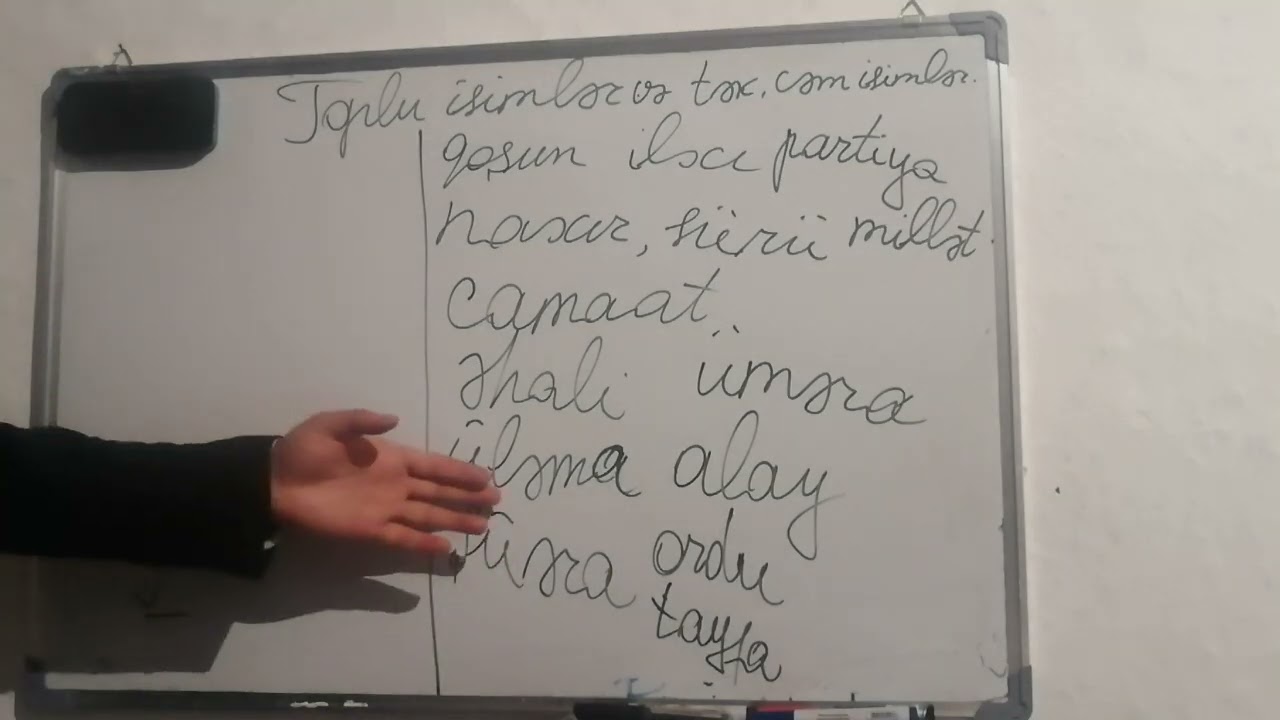 Toplu isimlər və tək, cəm isimlər.
qoşun ilxı partiya
naxır, sürü millət.
Camaat
Əhali üməra
üləma alay
füəra ordu
tayfa